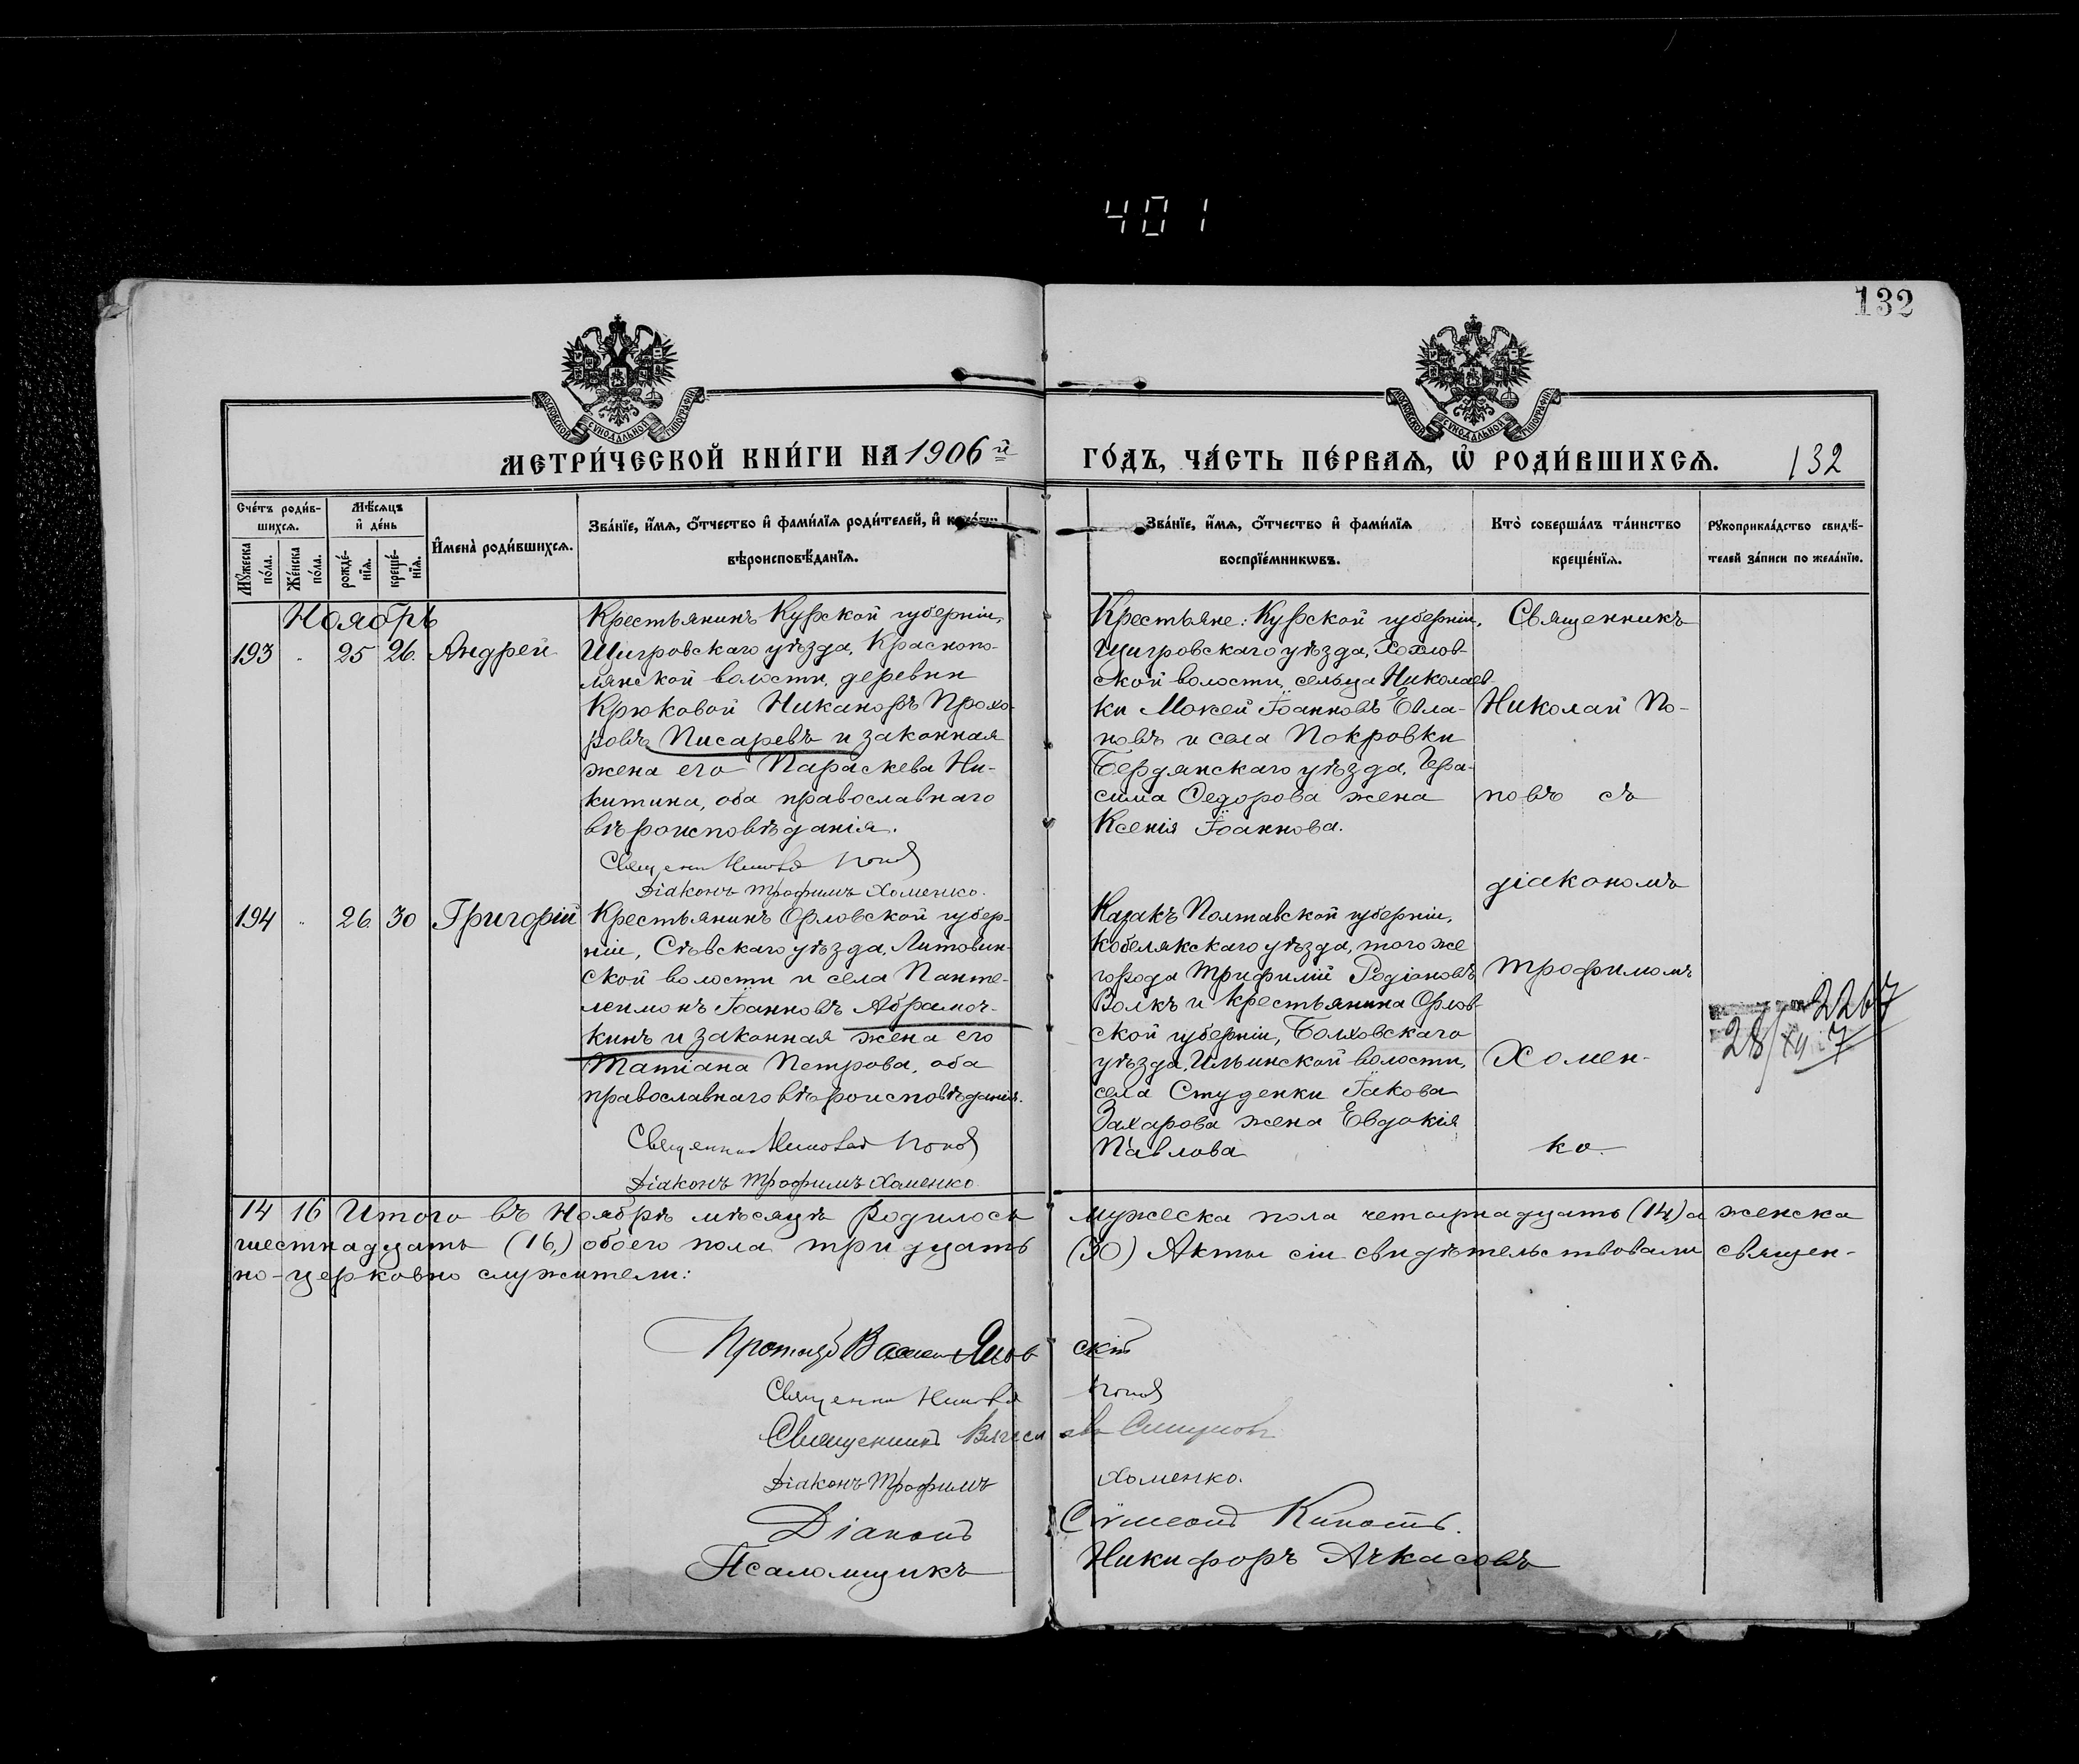 401
132
МОСКОВСКОЙ СѴНОДАЛЬНОЙ ТИПОГРАФІИ
МОСКОВСКОЙ СѴНОДАЛЬНОЙ ТИПОГРАФІИ
МЕТРИ́ЧЕСКОЙ КНИ́ГИ НА 1906 й
ГО́ДЪ, ЧА́СТЬ ПЕ́РВАѦ, Ѡ҆ РОДИ́ВШИХСѦ. 132
Сче́тъ роди́в-
шихсѧ.
Мꙋ́жеска
по́ла.
Же́нска
по́ла.
Мѣ́сѧцъ
и҆ де́нь
рожде́-
нїѧ.
креще́-
нїѧ.
И҆мена̀ роди́вшихсѧ.
Зва́нїе, и҆́мѧ, ѻ҆́тчество и҆ фами́лїѧ роди́телей, и҆
вѣроисповѣ́данїѧ.
Зва́нїе, и҆́мѧ, ѻ҆́тчество и҆ фами́лїѧ
воспрїе́мникѡвъ.
Кто̀ соверша́лъ та́инство
креще́нїѧ.
Рꙋкоприкла́дство свидѣ́-
телей за́писи по жела́нїю.
Ноябрь
193 " 25 26. Андрей
Крестьянинъ Курской губерніи,
Щигровскаго уѣзда, Краснопо-
лянской волости, деревни
Крюковой Никаноръ Прохо-
ровъ Писаревъ и законная
жена его Параскева Ни-
китина, оба православнаго
вѣроисповѣданія.
Діаконъ Трофимъ Хоменко.
Крестьяне: Курской губерніи,
Щигровскаго уѣзда, Хохлов-
ской волости, сельца Николаев-
ки Мокей Іоанновъ Евла-
новъ и села Покровки
Бердянскаго уѣзда, Гера-
сима Ѳедорова жена
Ксенія Іоаннова.
Священникъ
Николай По-
повъ съ
діакономъ
Трофимомъ
Хомен-
ко.
194 " 26. 30 Григорій
Крестьянинъ Орловской губер-
ніи, Сѣвскаго уѣзда, Литовин-
ской волости и села Панте-
леимонъ Іоанновъ Абрамоч-
кинъ и законная жена его
Татіана Петрова, оба
православнаго вѣроисповѣданія.
Діаконъ Трофимъ Хоменко
Казакъ Полтавской губерніи,
Кобелякскаго уѣзда, того же
города Трифилій Родіоновъ
Волкъ и крестьянина Орлов-
ской губерніи, Болховскаго
уѣзда, Ильинской волости,
села Студенки Іакова
Захарова жена Евдокія
Павлова
2267
28/XII 7
14 16 Итого въ Ноябрѣ мѣсяцѣ родилось мужеска пола четырнадцать (14) а женска
шестнадцать (16,) обоего пола тридцать (30) Акты сіи свидѣтельствовали священ-
но-церковно служители:
Священникъ Николай Попов
Священникъ Вячеславъ Смирновъ
Діаконъ Трофимъ Хоменко.
Діаконъ Сѵмеонъ
Псаломщикъ Никифоръ Ачкасовъ